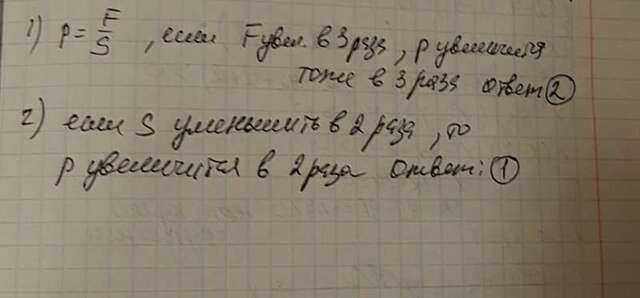 1) p = F/S , если F увел. в 3 раза, p увеличится
тоже в 3 раза ответ ②
2) если S уменьшить в 2 раза, то
p увеличится в 2 раза ответ: ①